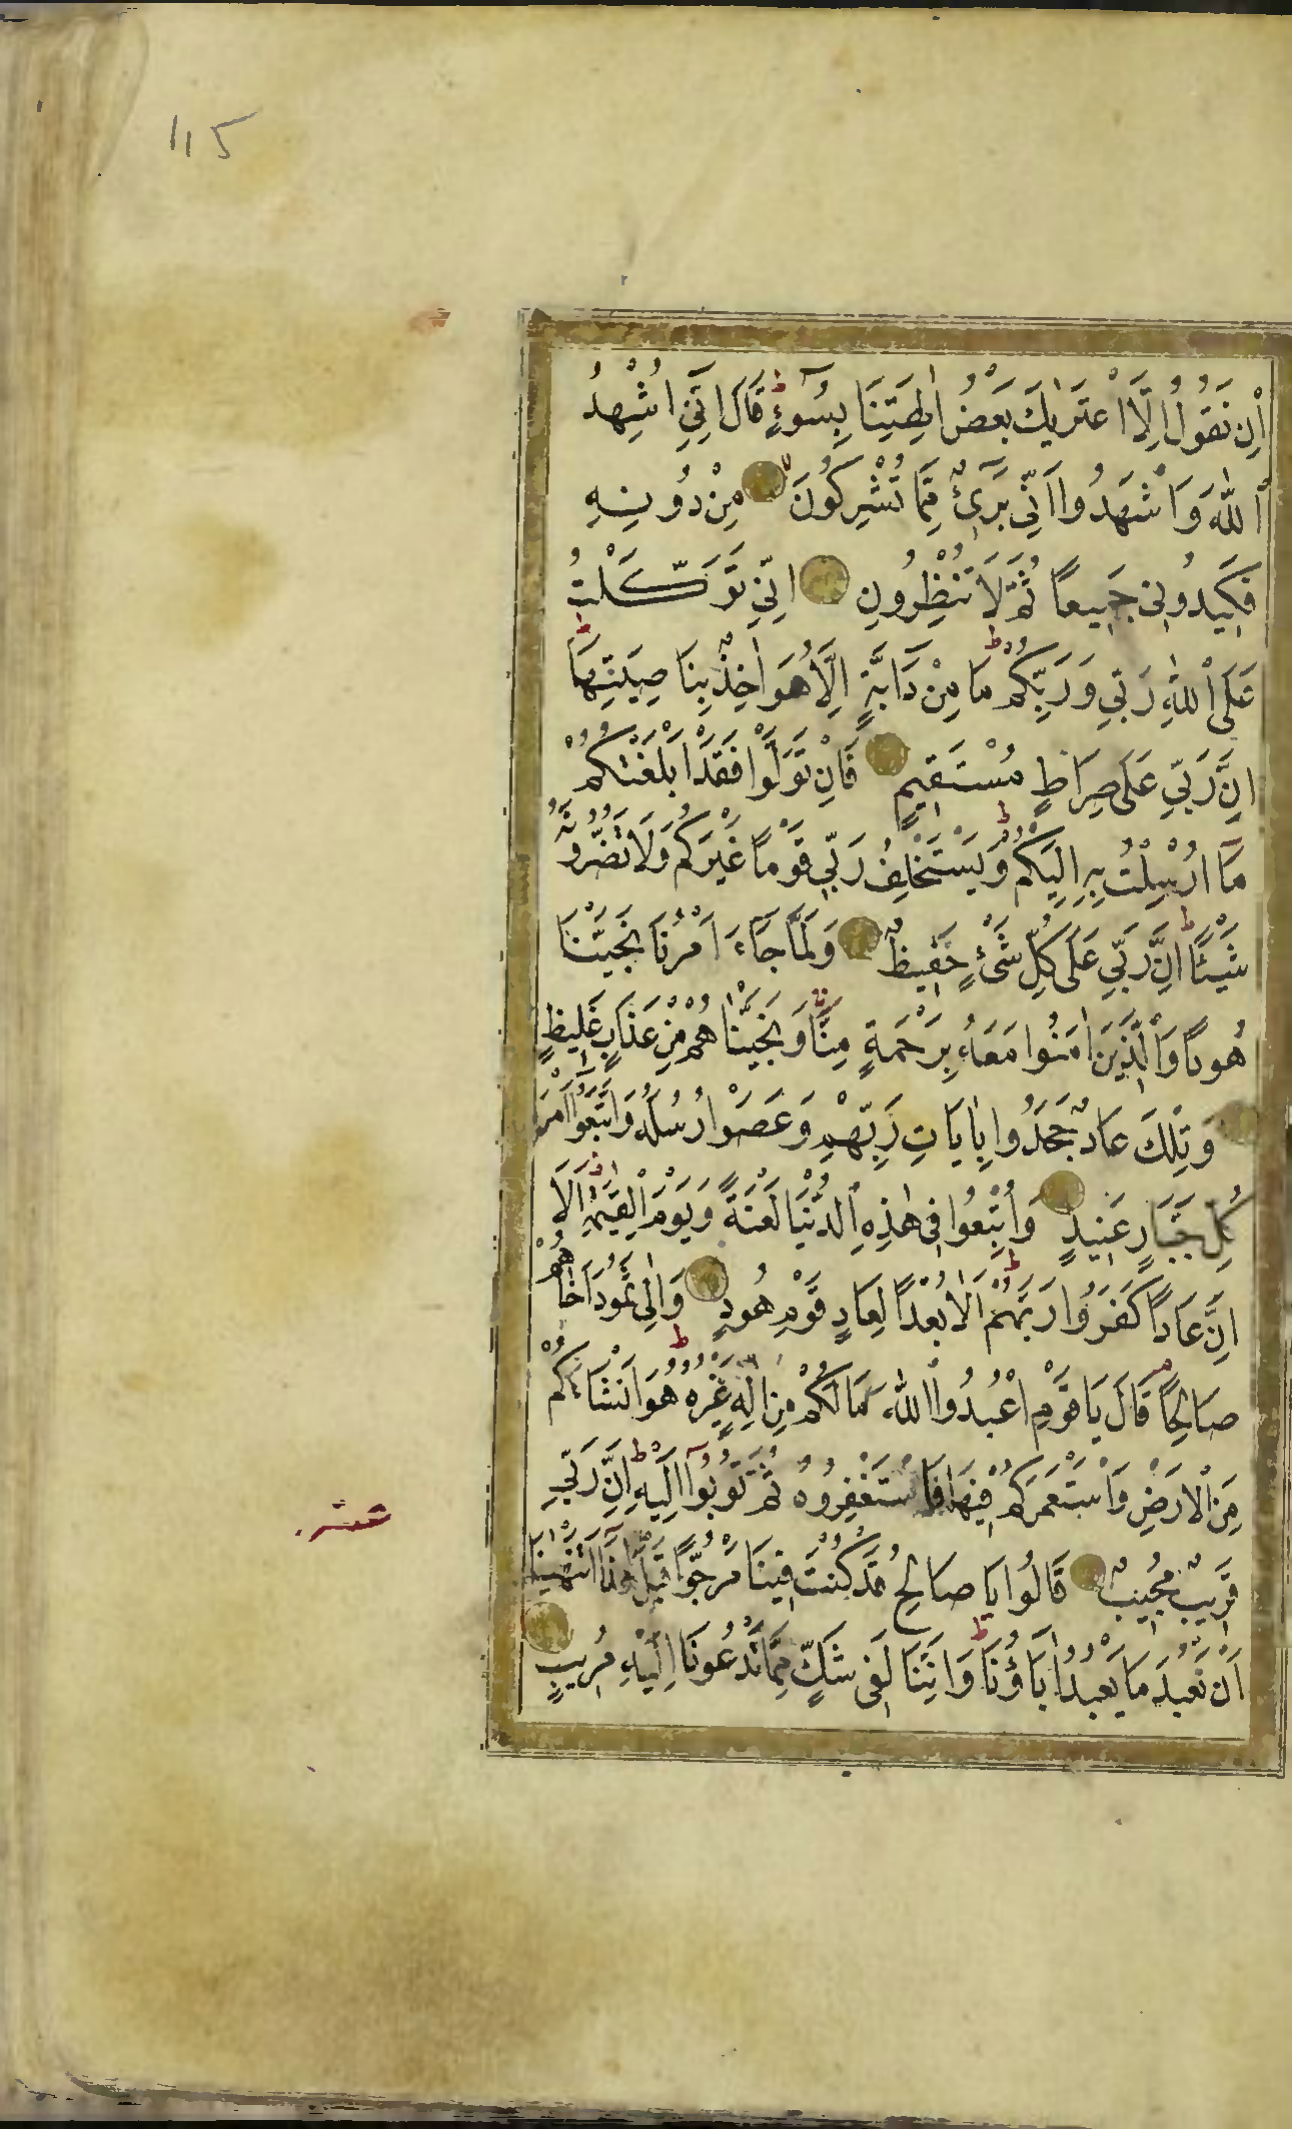 115
اِن نَقُولُ اِلَّا اعْتَرٰيكَ بَعْضُ اٰلِهَتِنَا بِسُوٓءٍ قَالَ اِنِّي اُشْهِدُ
اللّٰهَ وَاشْهَدُوا اَنِّي بَرِيٓءٌ مِمَّا تُشْرِكُونَ مِنْ دُونِهِ
فَكِيدُونِي جَمِيعًا ثُمَّ لَا تُنْظِرُونِ اِنِّي تَوَكَّلْتُ
عَلَى اللّٰهِ رَبِّي وَرَبِّكُمْ مَا مِنْ دَابَّةٍ اِلَّا هُوَ اٰخِذٌ بِنَاصِيَتِهَا
اِنَّ رَبِّي عَلَى صِرَاطٍ مُسْتَقِيمٍ فَاِنْ تَوَلَّوْا فَقَدْ اَبْلَغْتُكُمْ
مَا اُرْسِلْتُ بِهِ اِلَيْكُمْ وَيَسْتَخْلِفُ رَبِّي قَوْمًا غَيْرَكُمْ وَلَا تَضُرُّونَهُ
شَيْئًا اِنَّ رَبِّي عَلَى كُلِّ شَيْءٍ حَفِيظٌ وَلَمَّا جَاءَ اَمْرُنَا نَجَّيْنَا
هُودًا وَالَّذِينَ اٰمَنُوا مَعَهُ بِرَحْمَةٍ مِنَّا وَنَجَّيْنَاهُمْ مِنْ عَذَابٍ غَلِيظٍ
وَتِلْكَ عَادٌ جَحَدُوا بِاٰيَاتِ رَبِّهِمْ وَعَصَوْا رُسُلَهُ وَاتَّبَعُوا اَمْرَ
كُلِّ جَبَّارٍ عَنِيدٍ وَاُتْبِعُوا فِي هٰذِهِ الدُّنْيَا لَعْنَةً وَيَوْمَ الْقِيٰمَةِ اَلَا
اِنَّ عَادًا كَفَرُوا رَبَّهُمْ اَلَا بُعْدًا لِعَادٍ قَوْمِ هُودٍ وَاِلٰى ثَمُودَ اَخَاهُمْ
صَالِحًا قَالَ يَا قَوْمِ اعْبُدُوا اللّٰهَ مَا لَكُمْ مِنْ اِلٰهٍ غَيْرُهُ هُوَ اَنْشَاَكُمْ
مِنَ الْاَرْضِ وَاسْتَعْمَرَكُمْ فِيهَا فَاسْتَغْفِرُوهُ ثُمَّ تُوبُوا اِلَيْهِ اِنَّ رَبِّي
عشر
قَرِيبٌ مُجِيبٌ قَالُوا يَا صَالِحُ قَدْ كُنْتَ فِينَا مَرْجُوًّا قَبْلَ هٰذَا اَتَنْهٰينَا
اَنْ نَعْبُدَ مَا يَعْبُدُ اٰبَاؤُنَا وَاِنَّنَا لَفِي شَكٍّ مِمَّا تَدْعُونَا اِلَيْهِ مُرِيبٍ